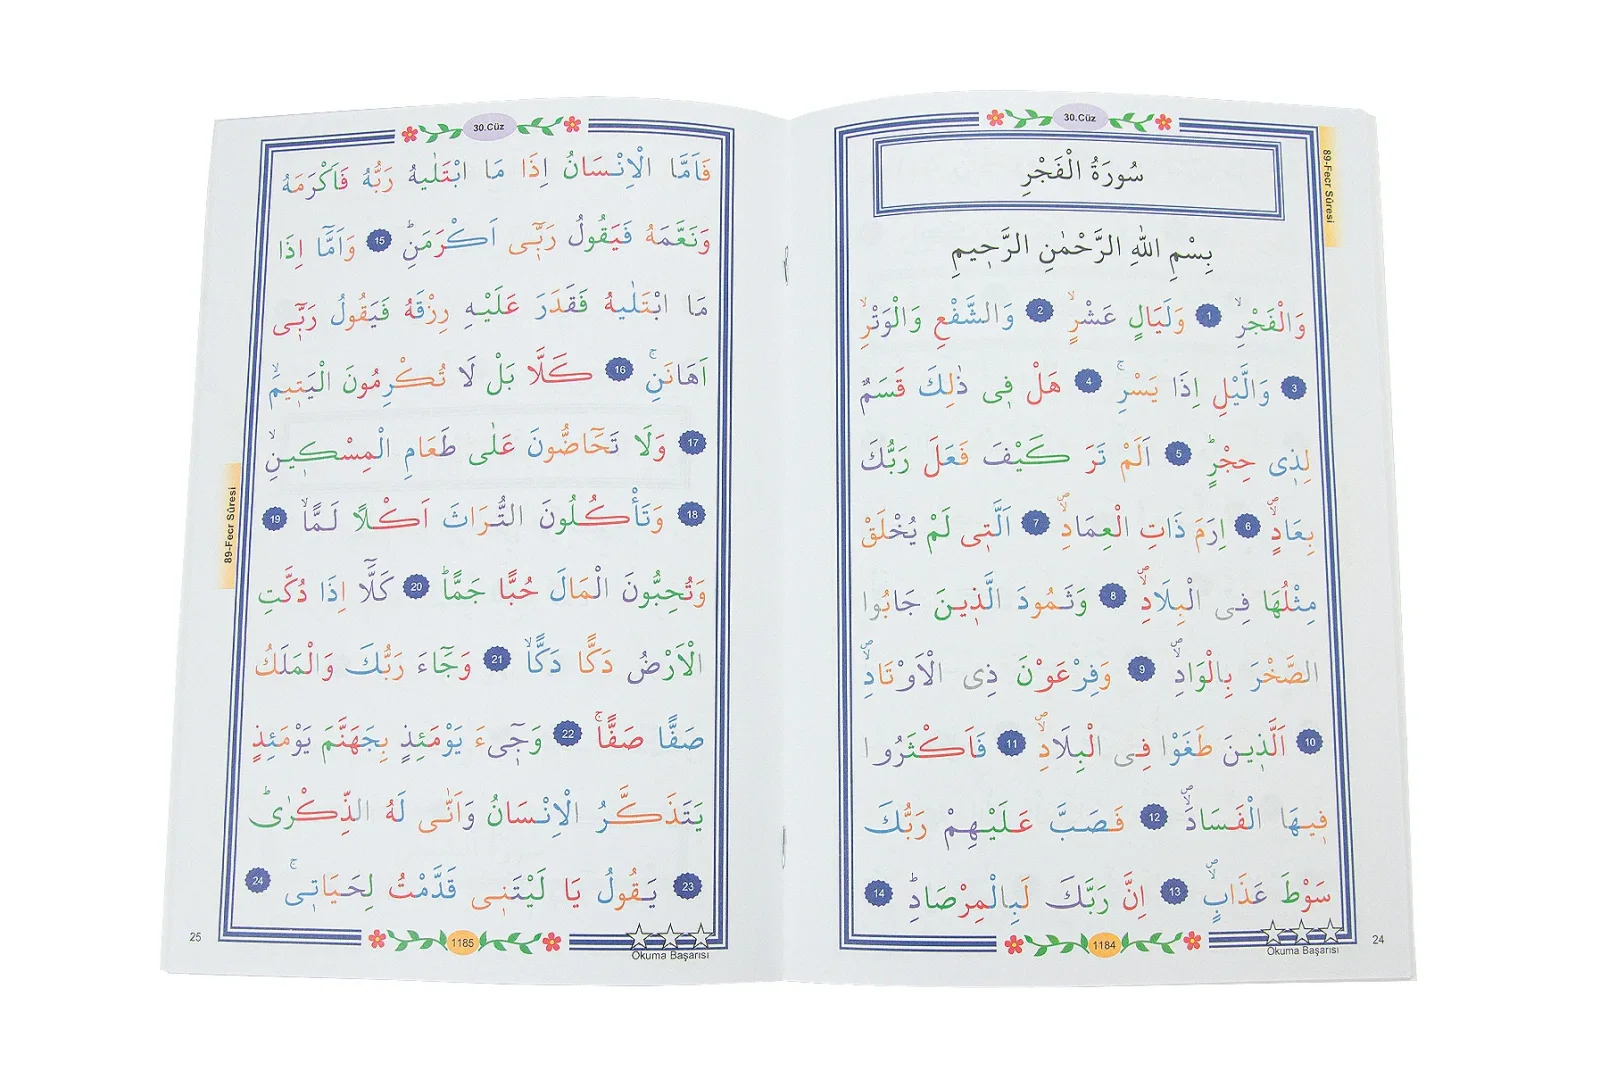 30.Cüz
89-Fecr Sûresi
سُورَةُ الْفَجْرِ
بِسْمِ اللهِ الرَّحْمٰنِ الرَّح۪يمِ
وَالْفَجْرِۙ 1 وَلَيَالٍ عَشْرٍۙ 2 وَالشَّفْعِ وَالْوَتْرِۙ
3 وَالَّيْلِ اِذَا يَسْرِۚ 4 هَلْ ف۪ى ذٰلِكَ قَسَمٌ
لِذ۪ى حِجْرٍۜ 5 اَلَمْ تَرَ كَيْفَ فَعَلَ رَبُّكَ
بِعَادٍۙۖ 6 اِرَمَ ذَاتِ الْعِمَادِۙۖ 7 اَلَّت۪ى لَمْ يُخْلَقْ
مِثْلُهَا فِى الْبِلَادِۙۖ 8 وَثَمُودَ الَّذ۪ينَ جَابُوا
الصَّخْرَ بِالْوَادِۙۖ 9 وَفِرْعَوْنَ ذِى الْاَوْتَادِۙۖ
10 اَلَّذ۪ينَ طَغَوْا فِى الْبِلَادِۙۖ 11 فَاَكْثَرُوا
ف۪يهَا الْفَسَادَۙۖ 12 فَصَبَّ عَلَيْهِمْ رَبُّكَ
سَوْطَ عَذَابٍۙۖ 13 اِنَّ رَبَّكَ لَبِالْمِرْصَادِۜ 14
Okuma Başarısı
1184
24
30.Cüz
89-Fecr Sûresi
فَاَمَّا الْاِنْسَانُ اِذَا مَا ابْتَلٰيهُ رَبُّهُ فَاَكْرَمَهُ
وَنَعَّمَهُ فَيَقُولُ رَبّ۪ٓى اَكْرَمَنِۜ 15 وَاَمَّٓا اِذَا
مَا ابْتَلٰيهُ فَقَدَرَ عَلَيْهِ رِزْقَهُ فَيَقُولُ رَبّ۪ٓى
اَهَانَنِۚ 16 كَلَّا بَلْ لَا تُكْرِمُونَ الْيَت۪يمَۙ
17 وَلَا تَحَٓاضُّونَ عَلٰى طَعَامِ الْمِسْك۪ينِۙ
18 وَتَأْكُلُونَ التُّرَاثَ اَكْلًا لَمًّاۙ 19
وَتُحِبُّونَ الْمَالَ حُبًّا جَمًّاۜ 20 كَلَّٓا اِذَا دُكَّتِ
الْاَرْضُ دَكًّا دَكًّاۙ 21 وَجَٓاءَ رَبُّكَ وَالْمَلَكُ
صَفًّا صَفًّاۚ 22 وَج۪ٓىءَ يَوْمَئِذٍ بِجَهَنَّمَ يَوْمَئِذٍ
يَتَذَكَّرُ الْاِنْسَانُ وَاَنّٰى لَهُ الذِّكْرٰىۜ
23 يَقُولُ يَا لَيْتَن۪ى قَدَّمْتُ لِحَيَات۪ىۚ 24
Okuma Başarısı
1185
25